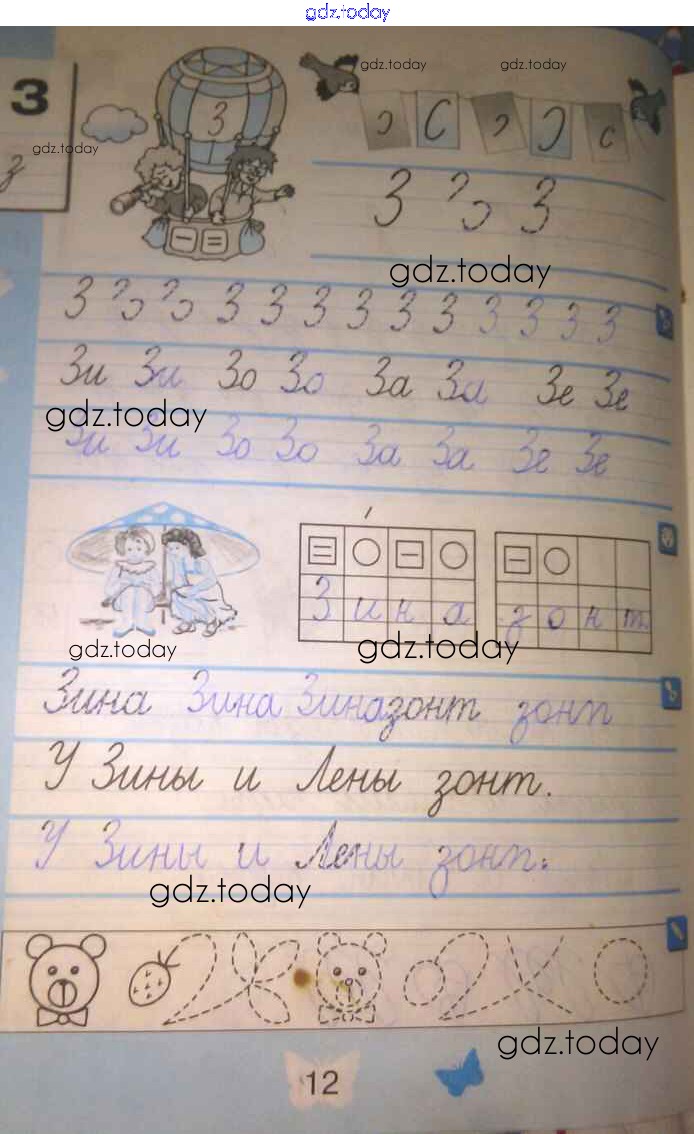 gdz.today
gdz.today gdz.today
З
З
gdz.today
з
З З
gdz.today
З З З З З З З З З З З
Зи Зи Зо Зо За За Зе Зе
gdz.today
Зи Зи Зо Зо За За Зе Зе
Зина зонт
gdz.today gdz.today
Зина Зина Зина зонт зонт
У Зины и Лены зонт.
У Зины и Лены зонт.
gdz.today
gdz.today
12